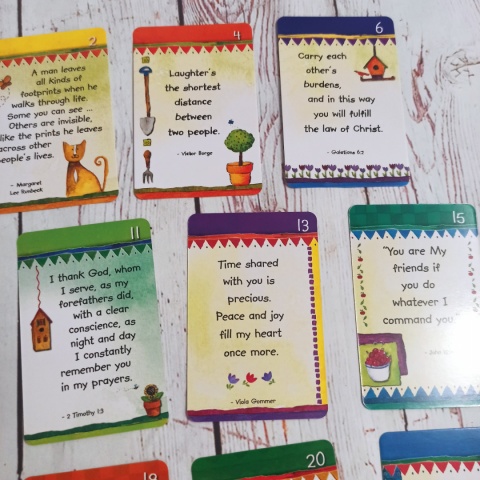 2
A man leaves
all kinds of
footprints when he
walks through life.
Some you can see ...
Others are invisible,
like the prints he leaves
across other
people's lives.
- Margaret
Lee Runbeck
4
Laughter's
the shortest
distance
between
two people.
- Victor Borge
6
Carry each
other's
burdens,
and in this way
you will fulfill
the law of Christ.
- Galatians 6:2
11
I thank God, whom
I serve, as my
forefathers did,
with a clear
conscience, as
night and day
I constantly
remember you
in my prayers.
- 2 Timothy 1:3
13
Time shared
with you is
precious.
Peace and joy
fill my heart
once more.
- Viola Gommer
15
"You are My
friends if
you do
whatever I
command you
- John
18
20